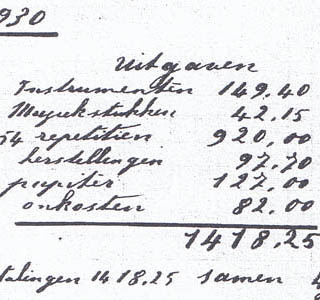 930
Uitgaven
Instrumenten 149,40
Muziekstukken 42,15
54 repetitien 920,00
herstellingen 97,70
pupiter 127,00
onkosten 82,00
1418,25
talingen 1418.25 samen